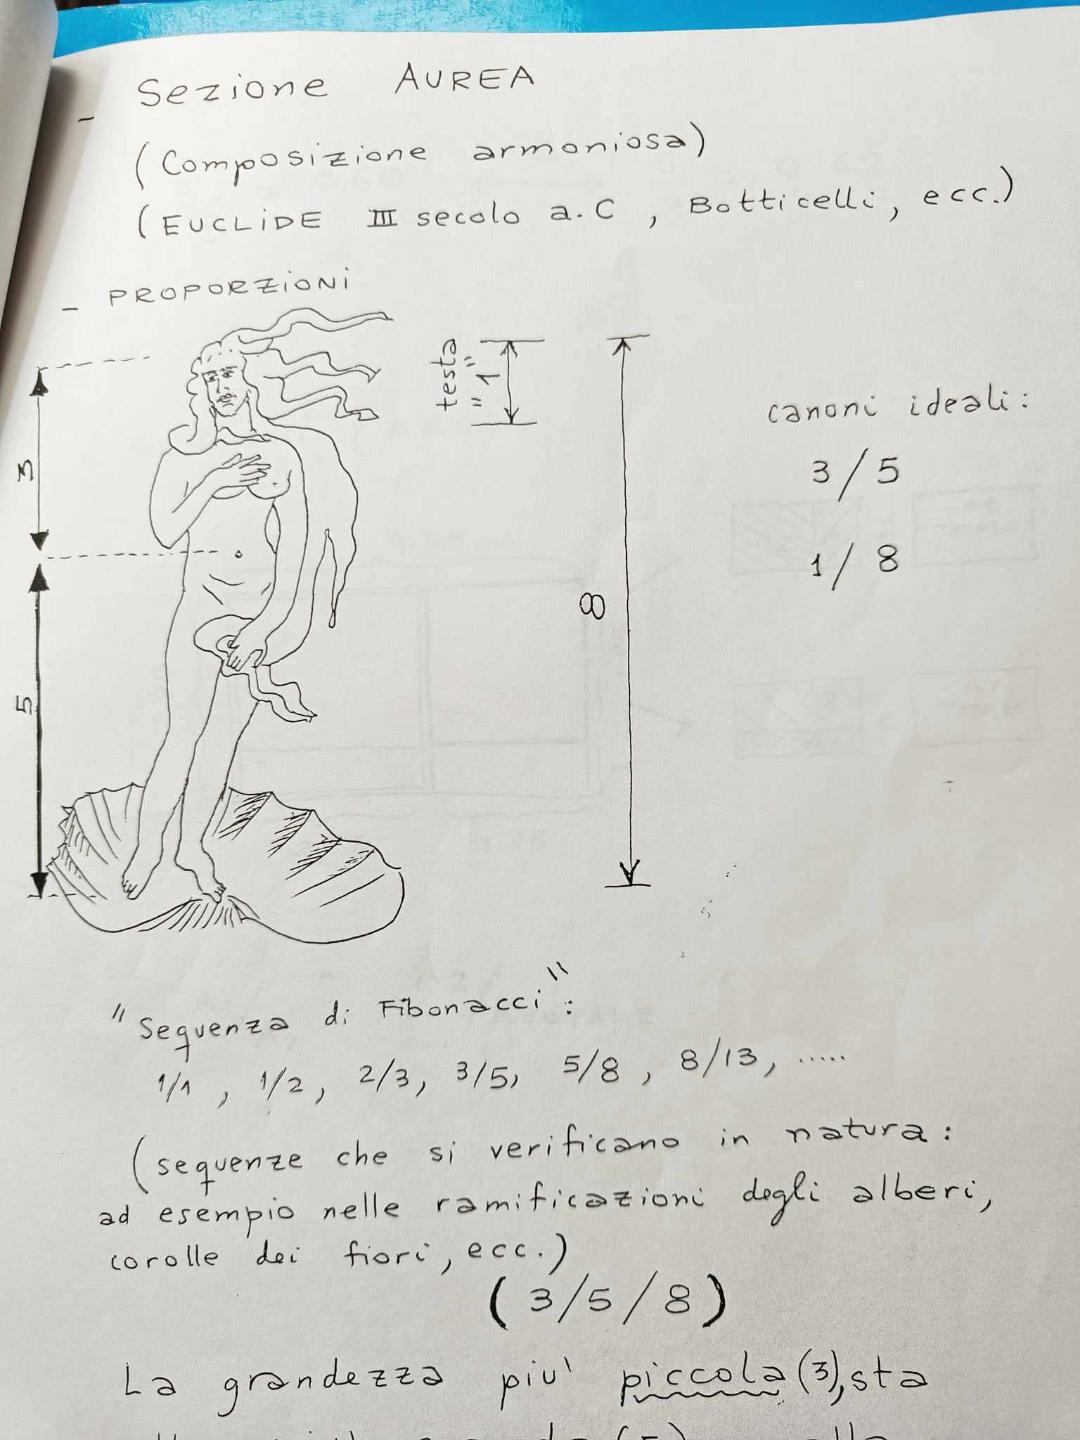 - Sezione AUREA
(Composizione armoniosa)
(EUCLIDE III secolo a.C, Botticelli, ecc.)
- PROPORZIONI
testa
"1"
3
5
8
canoni ideali:
3/5
1/8
"Sequenza di Fibonacci":
1/1, 1/2, 2/3, 3/5, 5/8, 8/13, .....
(sequenze che si verificano in natura:
ad esempio nelle ramificazioni degli alberi,
corolle dei fiori, ecc.)
(3/5/8)
La grandezza piu' piccola (3), sta